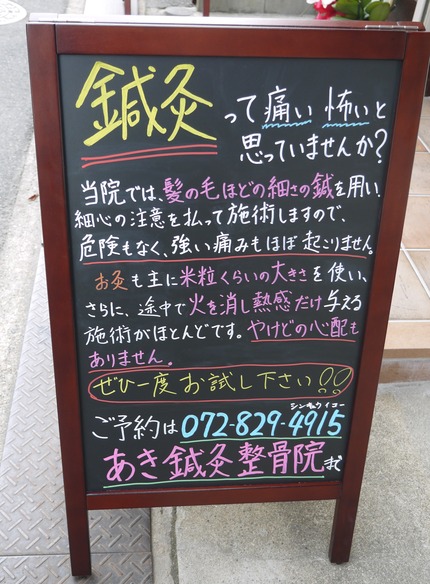 鍼灸って痛い 怖いと
思っていませんか?
当院では、髪の毛ほどの細さの鍼を用い、
細心の注意を払って施術しますので、
危険もなく、強い痛みもほぼ起こりません。
お灸も主に米粒くらいの大きさを使い、
さらに、途中で火を消し熱感だけ与える
施術がほとんどです。やけどの心配も
ありません。
ぜひ一度お試し下さい!!
シンキュウイコー
ご予約は072-829-4915
あき鍼灸整骨院まで